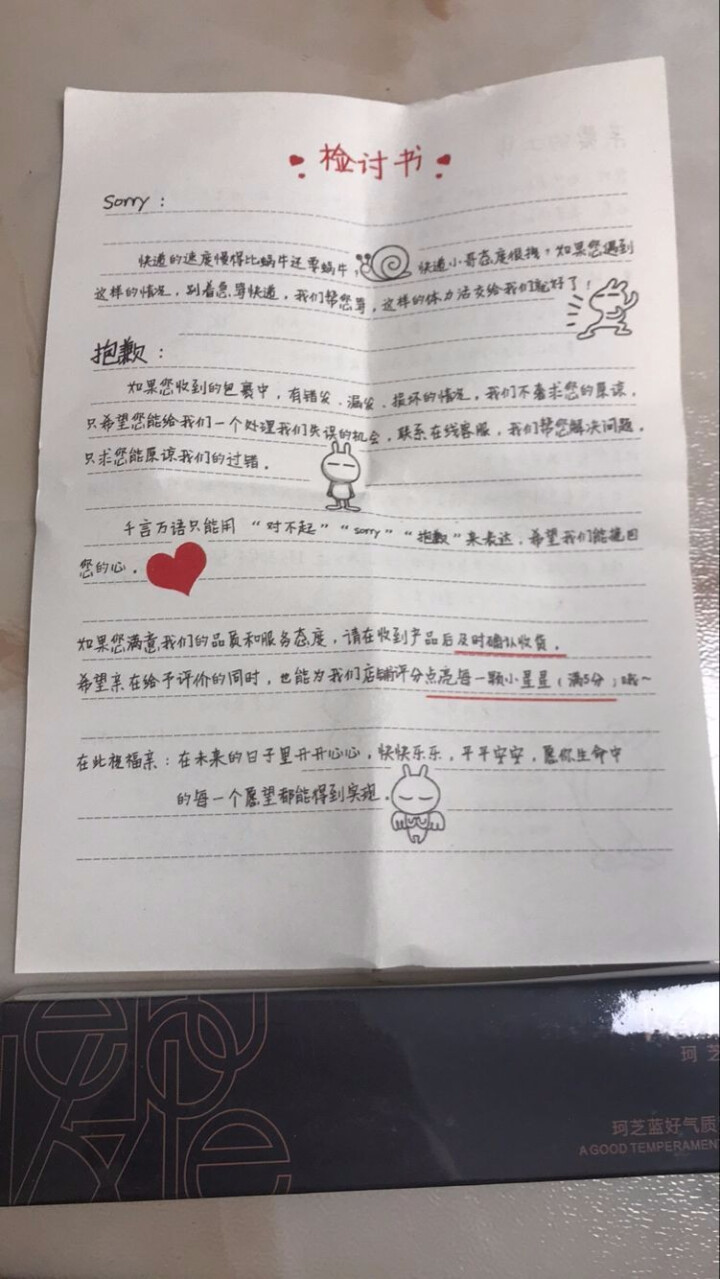 检讨书
Sorry：
快递的速度慢得比蜗牛还要蜗牛，快递小哥态度很拽，如果您遇到
这样的情况，别着急骂快递，我们帮您骂，这样的体力活交给我们就好了！
抱歉：
如果您收到的包裹中，有错发、漏发、损坏的情况，我们不奢求您的原谅，
只希望您能给我们一个处理我们失误的机会，联系在线客服，我们帮您解决问题，
只求您能原谅我们的过错。
千言万语只能用“对不起”“sorry”“抱歉”来表达，希望我们能挽回
您的心。
如果您满意我们的品质和服务态度，请在收到产品后及时确认收货。
希望亲在给予评价的同时，也能为我们店铺评分点亮每一颗小星星（满5分）哦~
在此祝福亲：在未来的日子里开开心心，快快乐乐，平平安安，愿你生命中
的每一个愿望都能得到实现。
珂芝
珂芝蓝好气质
A GOOD TEMPERAMEN